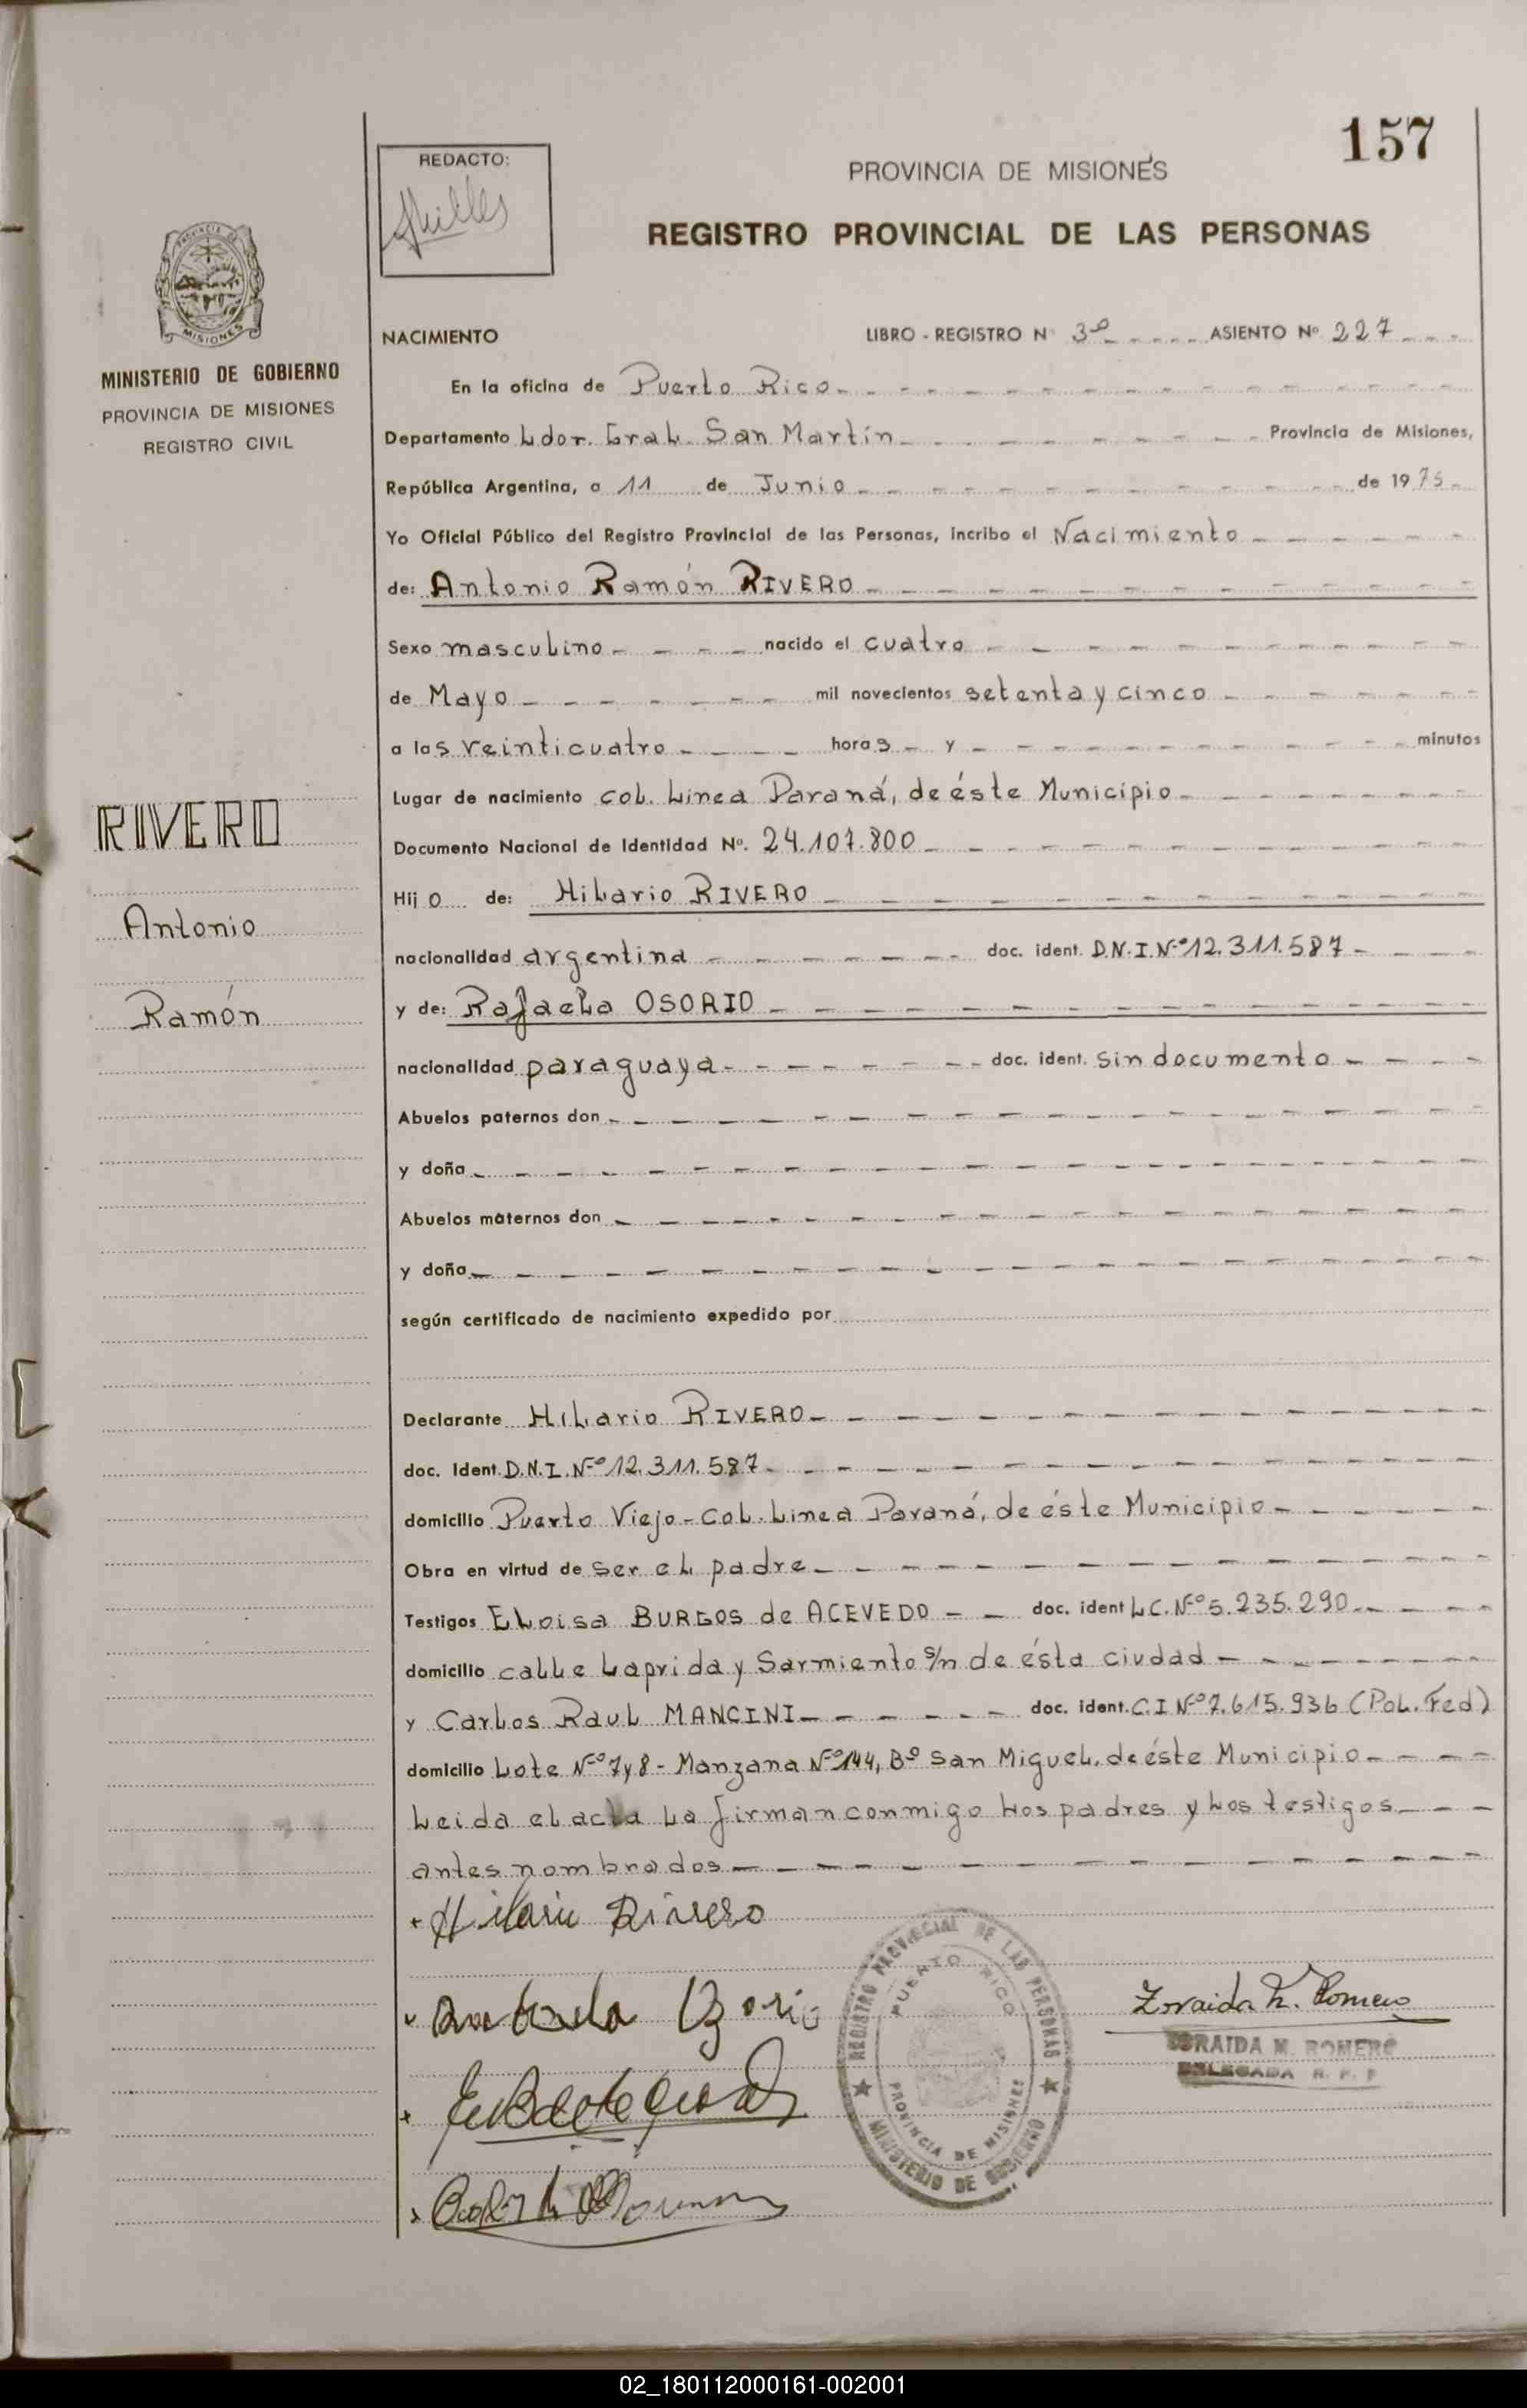 157
REDACTO:
PROVINCIA DE MISIONES
REGISTRO PROVINCIAL DE LAS PERSONAS
PROVINCIA DE
MISIONES
MINISTERIO DE GOBIERNO
PROVINCIA DE MISIONES
REGISTRO CIVIL
RIVERO
Antonio
Ramón
NACIMIENTO LIBRO - REGISTRO Nº 3º ASIENTO Nº 227
En la oficina de Puerto Rico
Departamento Ldor. Gral. San Martín Provincia de Misiones,
República Argentina, a 11 de Junio de 1975
Yo Oficial Público del Registro Provincial de las Personas, incribo el Nacimiento
de: Antonio Ramón RIVERO
Sexo masculino nacido el cuatro
de Mayo mil novecientos setenta y cinco
a las veinticuatro horas y minutos
Lugar de nacimiento Col. Linea Paraná, de éste Municipio
Documento Nacional de Identidad Nº. 24.107.800
Hijo de: Hilario RIVERO
nacionalidad argentina doc. ident. D.N.I.Nº12.311.587
y de: Rafaela OSORIO
nacionalidad paraguaya doc. ident. sin documento
Abuelos paternos don
y doña
Abuelos maternos don
y doña
según certificado de nacimiento expedido por
Declarante Hilario RIVERO
doc. Ident. D.N.I.Nº12.311.587
domicilio Puerto Viejo - Col. Linea Paraná, de éste Municipio
Obra en virtud de ser el padre
Testigos Eloisa BURGOS de ACEVEDO doc. ident L.C.Nº5.235.290
domicilio calle Laprida y Sarmiento s/n de ésta ciudad
y Carlos Raul MANCINI doc. ident. C.I Nº7.615.936 (Pol. Fed)
domicilio Lote Nº7y8 - Manzana Nº144, Bº San Miguel, de éste Municipio
Leida el acta la firman conmigo los padres y los testigos
antes nombrados
Hilario Rivero
Zoraida M. Romero
ZORAIDA M. ROMERO
DELEGADA R. P. P
REGISTRO PROVINCIAL DE LAS PERSONAS
PUERTO RICO
PROVINCIA DE MISIONES
MINISTERIO DE GOBIERNO
02_180112000161-002001